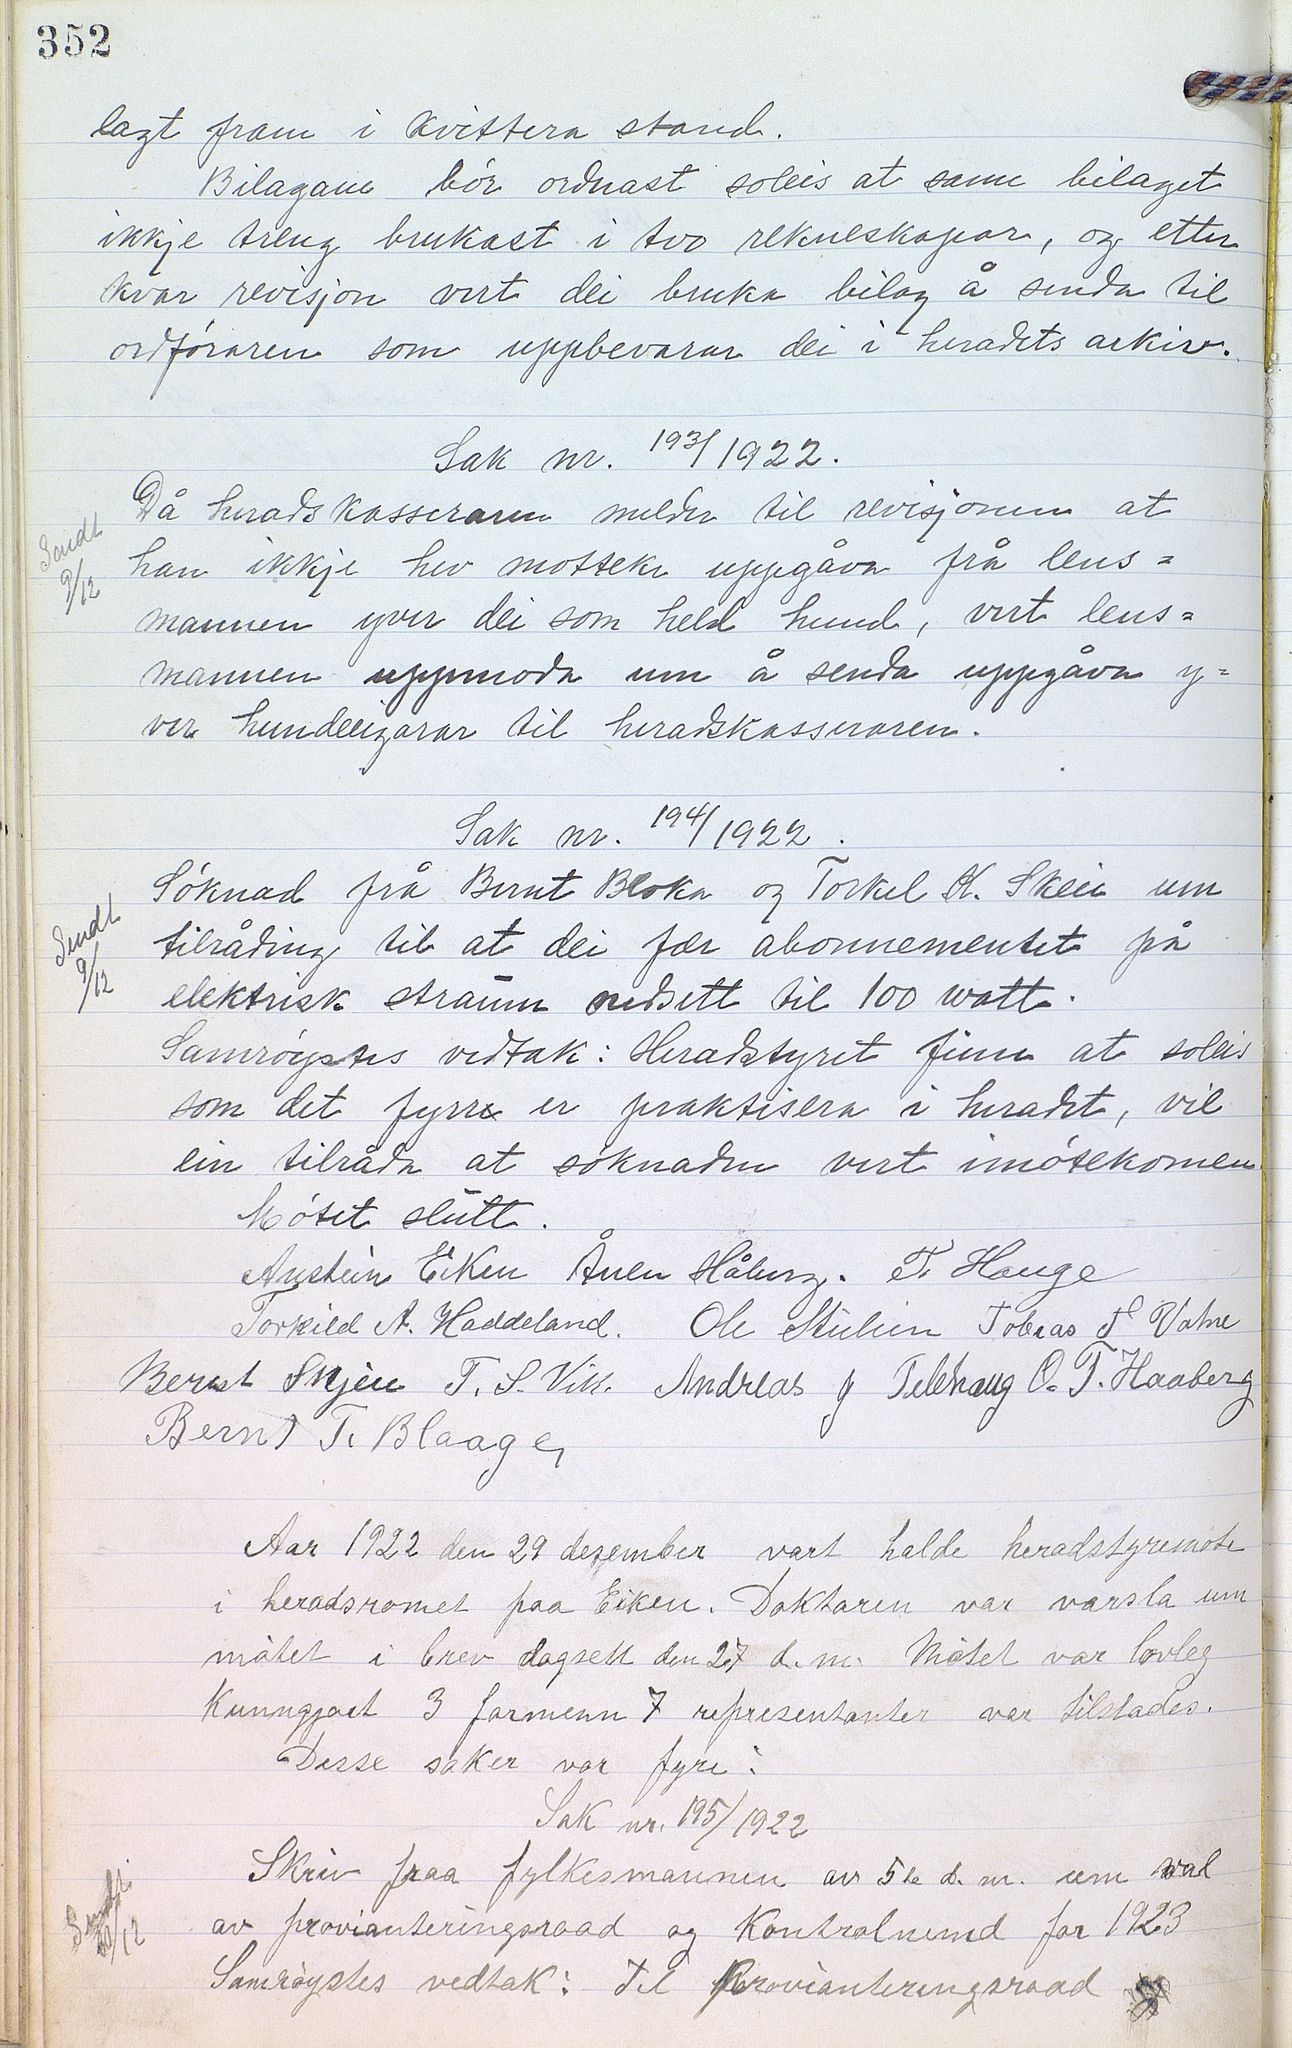 352
lagt fram i kvittera stand.
Bilagane bör ordnast soleis at same bilaget
ikkje treng brukast i tvo rekneskapar, og etter
kvar revisjon vert dei bruka bilag å senda til
ordföraren som uppbevarar dei i heradets arkiv.
Sak nr. 193/1922.
Då heradskasseraren melder til revisjonen at
Sendt
9/12
han ikkje hev motteke uppgåva frå lens=
mannen yver dei som held hund, vert lens=
mannen uppmoda um å senda uppgåva y=
ver hundeeigarar til heradskasseraren.
Sak nr. 194/1922.
Söknad frå Bernt Bloka og Torkel K. Skeie um
Sendt
9/12
tilråding til at dei fær abonnementet på
elektrisk straum nedsett til 100 watt.
Samröystes vedtak: Heradstyret finn at soleis
som det fyrr er praktisera i heradet, vil
ein tilråda at söknaden vert imötekomen.
Mötet slutt.
Austein Eiken Ånen Håberg. T. Hauge
Torkild A. Haddeland. Ole Stulien Tobias T Vatne
Bernt Skjeie T. S. Vik. Andreas J Telehaug O. T. Haaberg
Bernt T. Blaage,
Aar 1922 den 29 dezember vart halde heradstyremöte
i heradsromet paa Eiken. Doktaren var varsla um
mötet i brev dagsett den 27 d. m. Mötet var lovleg
Kunngjort 3 formenn 7 representanter var tilstades.
Desse saker var fyre:
Sak nr. 195/1922
Skriv fraa fylkesmannen av 5te d. m. um val
Sendt
30/12
av provianteringsraad og Kontrolnemd for 1923
Samröystes vedtak: Til Provianteringsraad